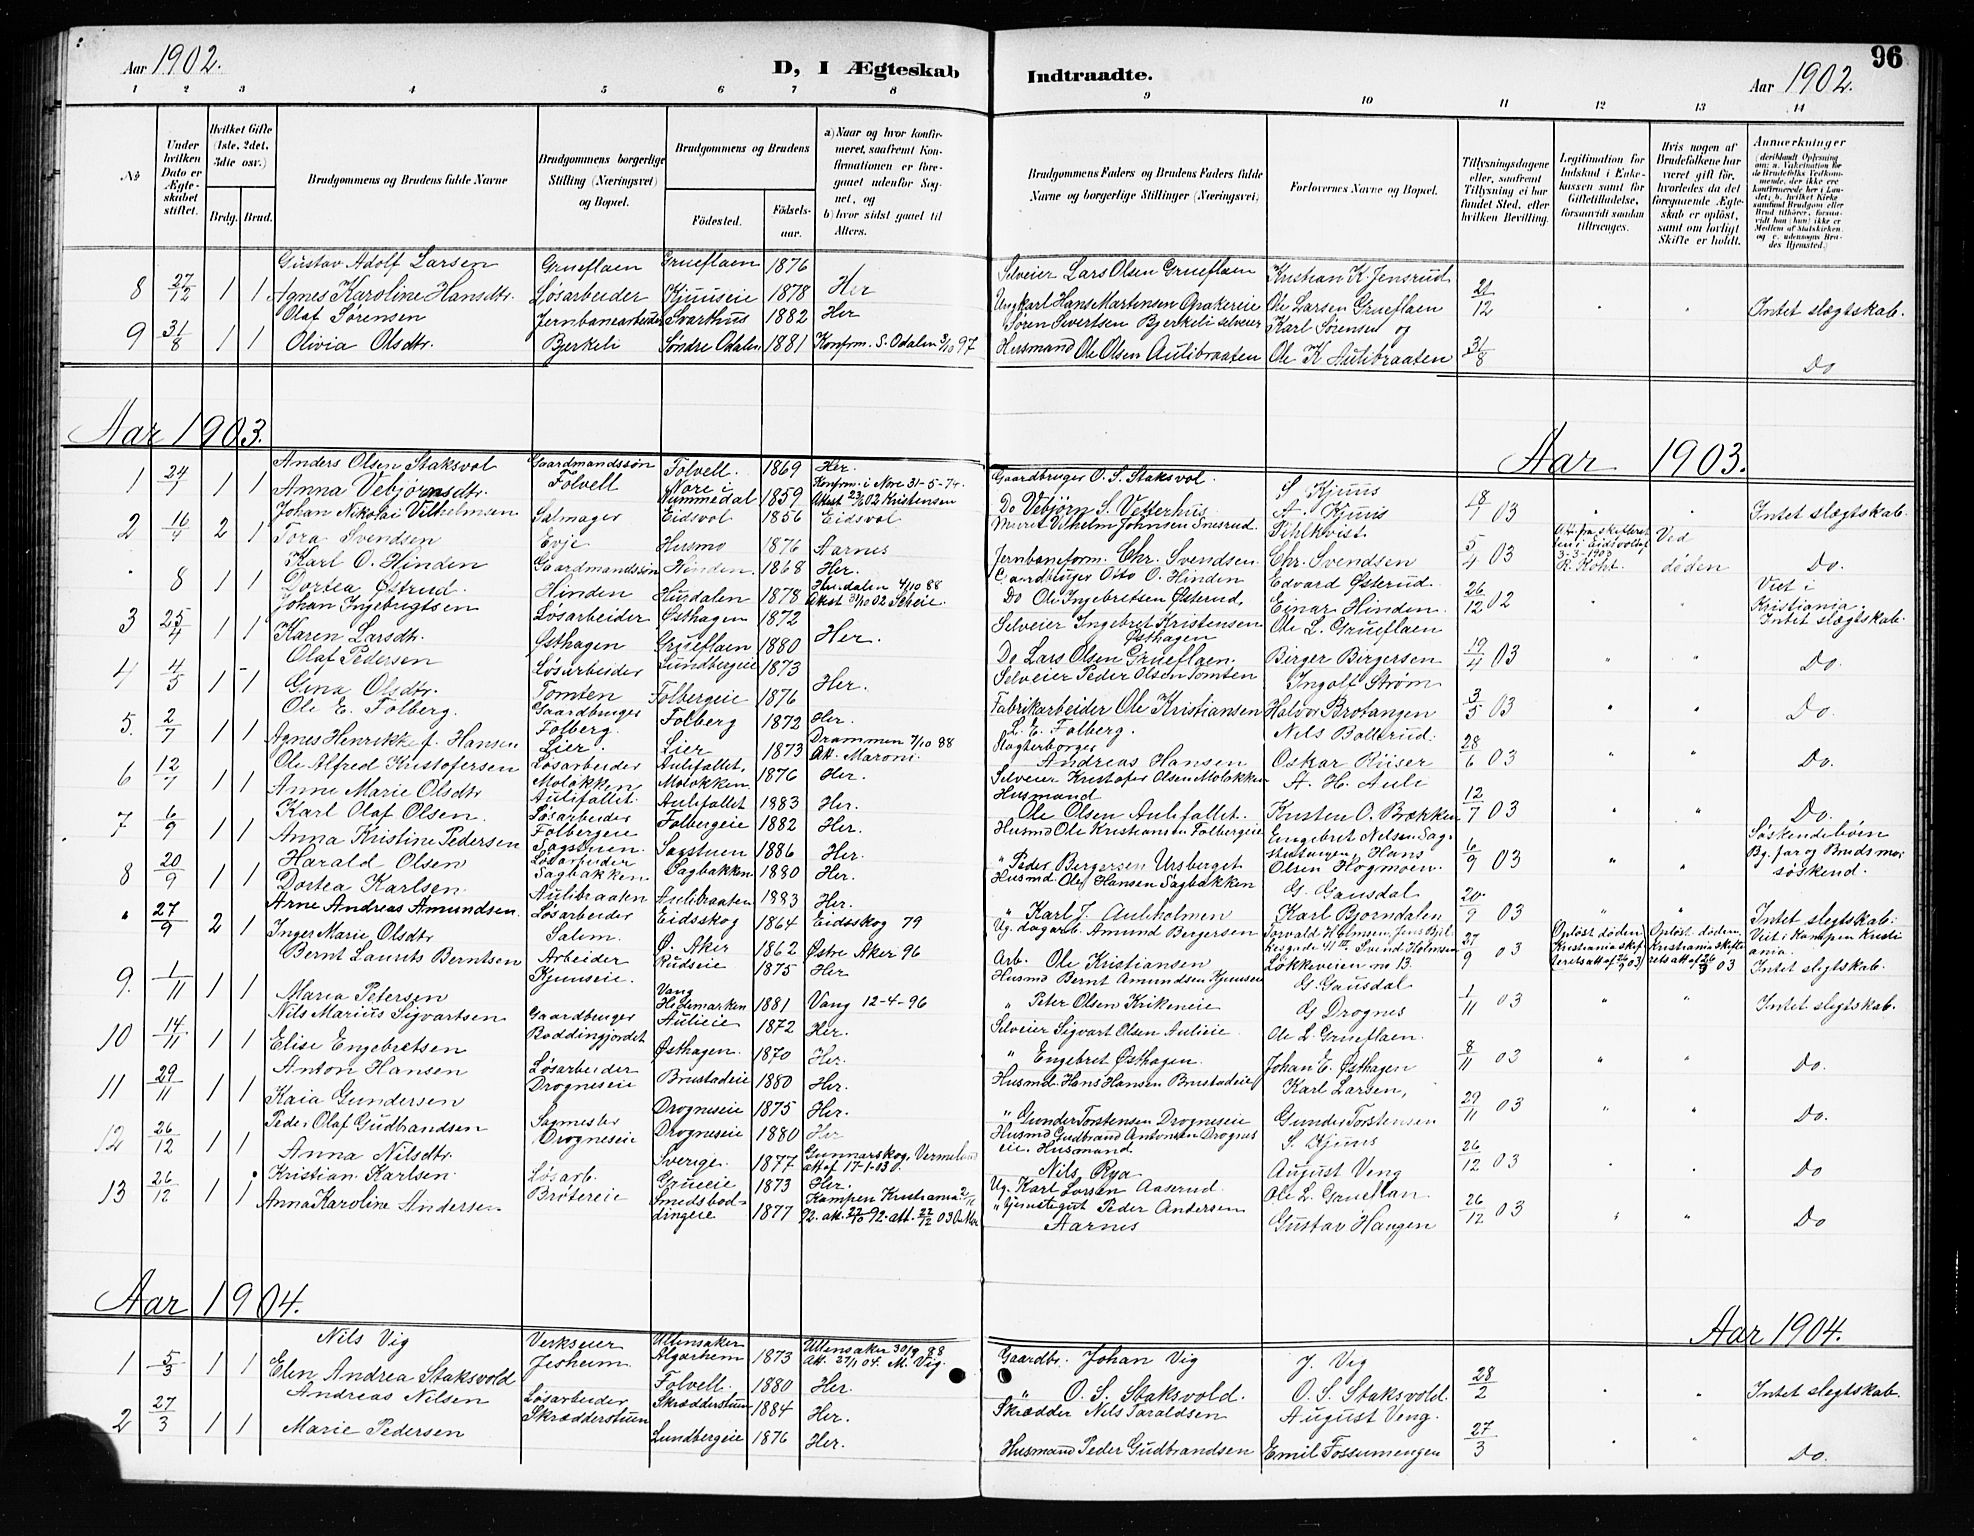 96
Aar 1902.
D, I Ægteskab
Indtraadte.
Aar 1902.
1 2 3 4 5 6 7 8 9 10 11 12 13 14
No
Under hvilken Dato er Ægteskabet stiftet.
Hvilket Gifte (1ste, 2det, 3die osv.)
Brdg. Brud.
Brudgommens og Brudens fulde Navne
Brudgommens borgerlige Stilling (Næringsvei) og Bopæl.
Brudgommens og Brudens
Fødested.
Fødselsaar.
a) Naar og hvor konfirmeret, saafremt Konfirmationen er foregaaet udenfor Sognet, og
b) hvor sidst gaaet til Alters.
Brudgommens Faders og Brudens Faders fulde Navne og borgerlige Stillinger (Næringsvei)
Forlovernes Navne og Bopæl.
Tillysningsdagene eller, saafremt Tillysning ei har fundet Sted, efter hvilken Bevilling.
Legitimation for Indskud i Enkekassen samt for Giftetilladelse, forsaavidt saadan tiltrænges.
Hvis nogen af Brudefolkene har været gift før, hvorledes da det foregaaende Ægteskab er opløst, samt om lovligt Skifte er holdt.
Anmærkninger
Gustav Adolf Larsen Grueflaen Grueflaen 1876 Selveier Lars Olsen Grueflaen Kristian K. Jensrud
8 27/12 1 1 Agnes Karoline Hansdtr. Løsarbeider Kjuuseie 1878 Her Ungkarl Hans Martinsen Opakereie Ole Larsen Grueflaen 21/12 " " Intet slægtskab.
Olaf Sørensen Jernbanearbeider Svarthus 1882 Her Søren Sivertsen Bjerkeli selveier Karl Sørensen og
9 31/8 1 1 Olivia Olsdtr. Bjerkeli Søndre Odalen 1881 Konfirm. S. Odalen 3/10 97 Husmand Ole Olsen Aulibraaten Ole K Aulibraaten 31/8 Do
Aar 1903. Aar 1903.
Anders Olsen Staksvol Gaardmandssøn Folvell. 1869 Her. Gaardbruger O. S. Staksvol. S Kjuus
1 24/1 1 1 Anna Vebjørnsdtr. Folvell Nore i Nummedal 1859 Konfirm. i Nore 31-5-74. Attest 23/12 02 Kristensen Do Vebjørn S. Vetterhus A. Kjuus 18/1 03 " " Intet slægtskab.
Johan Nikolai Vilhelmsen Salmager Eidsvol 1856 Eidsvol Murer Vilhelm Johnsen Snerud Pihlkvist
2 16/4 2 1 Tora Svendsen Evje Husmo 1876 Aarnes Jernbaneform. Chr. Svendsen Chr. Svendsen 5/4 03 3-3-1903 R. Koht. Ved døden Do.
Karl O. Hinden Gaardmandssøn Hinden 1868 Her. Gaardbruger Otto O. Hinden Edvard Østerud
" 8 1 1 Dortea Østrud. Hinden Hurdalen 1878 Hurdalen 4/10 88 Attest 31/10 02 Scheie. Do Ole Ingebretsen Østerud, Einar Hinden 26/12 02 " " Viet i Kristiania. Intet slægtskab.
Johan Ingebrigtsen Løsarbeider Østhagen 1872 Selveier Ingebret Kristensen Østhagen Ole L. Grueflaen
3 25/4 1 1 Karen Larsdtr. Østhagen Grueflaen 1880 Her. Do Lars Olsen Grueflaen. Birger Birgersen 19/4 03 " " Do.
Olaf Pedersen Løsarbeider Lundbergeie 1873 Selveier Peder Olsen Tomten Ingolf Strøm
4 4/5 1 1 Gina Olsdtr. Tomten Folbergeie 1876 Her. Fabrikarbeider Ole Kristiansen Halvor Brotangen 3/5 03 " " Do.
Ole E. Folberg. Gaardbruger Folberg 1872 Her. L. E. Folberg. Nils Bollerud.
5. 2/7 1 1 Agnes Henrikke f. Hansen Folberg. Lier. Lier 1873 Drammen 7/10 88 Att. Maroni. Slagterborger Andreas Hansen Oskar Riiser 28/6 03 " " Do.
Ole Alfred Kristofersen Løsarbeider Molokken Aulifallet, Molokken 1876 Her. Selveier Kristofer Olsen Molokken A. H. Auli
6 12/7 1 1 Anne Marie Olsdtr Aulifallet. Aulifallet 1883 Her. Husmand Ole Olsen Aulifallet. Kristen O. Brækken 12/7 03 " " Do.
Karl Olaf Olsen. Løsarbeider Folbergeie Folbergeie 1882 Her. Husmd Ole Kristiansen Folbergeie Engebret Nelsen Sagstutangen
7 6/9 1 1 Anna Kristine Pedersen Sagstuen. Sagstuen 1886 Her. " Peder Bergersen Ursberget Hans Olsen Hogmoen 6/9 03 " " Søskendebørn Bg. far og Bruds mor søskend.
Harald Olsen Løsarbeider Sagbakken Sagbakken 1880 Her. Husmd. Ole Hansen Sagbakken G. Gausdal
8 20/9 1 1 Dortea Karlsen Aulibraaten Aulibraaten 1883 Her. " Karl J. Auliholmen Karl Bjørndalen 20/9 03 " " Intet slegtskab.
Arne Andreas Amundsen. Løsarbeider Eidsskog 1864 Eidsskog 79 Ug. dagarb. Amund Bergersen Torvald Holmsen, Jens Bjelkesgade 41 III
" 27/9 2 1 Inger Marie Olsdtr Salem. Ø. Aker 1862 Østre Aker 96 Arb. Ole Kristiansen Svend Holmsen Løkkeveien no 13. 27/9 03 Opløst døden. Kristiania skifteretsatt af 26/9 03 Opløst døden. Kristiania skifteretsatt af 26/9 03 Viet i Kampen Kristiania. Intet slegtskab.
Bernt Laurits Berntsen Arbeider Rudseie 1875 Her Husmd Bernt Amundsen Kjuuseie G. Gausdal
9. 1/11 1 1 Maria Petersen Kjuuseie. Vang Hedemarken 1881 Vang 12-4-96 " Peter Olsen Krikeneie G Drognes 1/11 03 " " Intet slegtskab.
Nils Marius Sigvartsen Gaardbruger Aulieie 1872 Her. Selveier Sigvart Olsen Aulieie Ole L. Grueflaen.
10 14/11 1 1 Elise Engebretsen Boddingjordet Østhagen. 1870 Her. " Engebret Østhagen. Johan E. Østhagen 8/11 03 " " Do.
Anton Hansen Løsarbeider Brustadeie 1880 Her. Husmd. Hans Hansen Brustadeie Karl Larsen,
11 29/11 1 1 Kaia Gundersen Drogneseie Drogneseie 1875 Her. " Gunder Torstensen Drogneseie Gunder Torstensen 29/11 03 " " Do.
Peder Olaf Gudbrandsen Sagmester Drogneseie 1880 Her Husmd Gudbrand Antonsen Drogneseie. S. Kjuus
12 26/12 1 1 Anna Nilsdtr. Drogneseie Sverige. 1877 Gunnarskog, Vermeland att af 17-1-03. Husmand Nils Rya August Veng 26/12 03 " " Do
Kristian Karlsen. Løsarb. Grueeie 1873 Her. Ug. Karl Larsen Aaserud. Ole L. Grueflan
13 26/12 1 1 Anna Karoline Andersen Brøtereie Smedsboddingeie 1877 Kampen Kristiania 2/10 92. att. 22/10 92. att. 22/12 03 " Tjenstegut Peder Andersen Aarnes Gustav Haugen 26/12 03 " " Do
Aar 1904. Aar 1904.
Nils Vig Verkseier Ullensaker Algarheim 1873 Ullensaker 30/9 88 Att. 27/1 04. M. Vig. Gaardbr. Johan Vig J. Vig
1 5/3 1 1 Elen Andrea Staksvold Jesheim. Folvell. 1880 Her. " O. S. Staksvold. O. S. Staksvold. 28/2 " " Intet slegtskab.
Andreas Nilsen Løsarbeider Skrædderstuen 1884 Her. Skrædder Nils Taraldsen August Veng.
2 27/3 1 1 Marie Pedersen Skrædderstuen Lundbergeie 1876 Her. Husmand Peder Gudbrandsen Emil Fossumengen 27/3 " " Do.